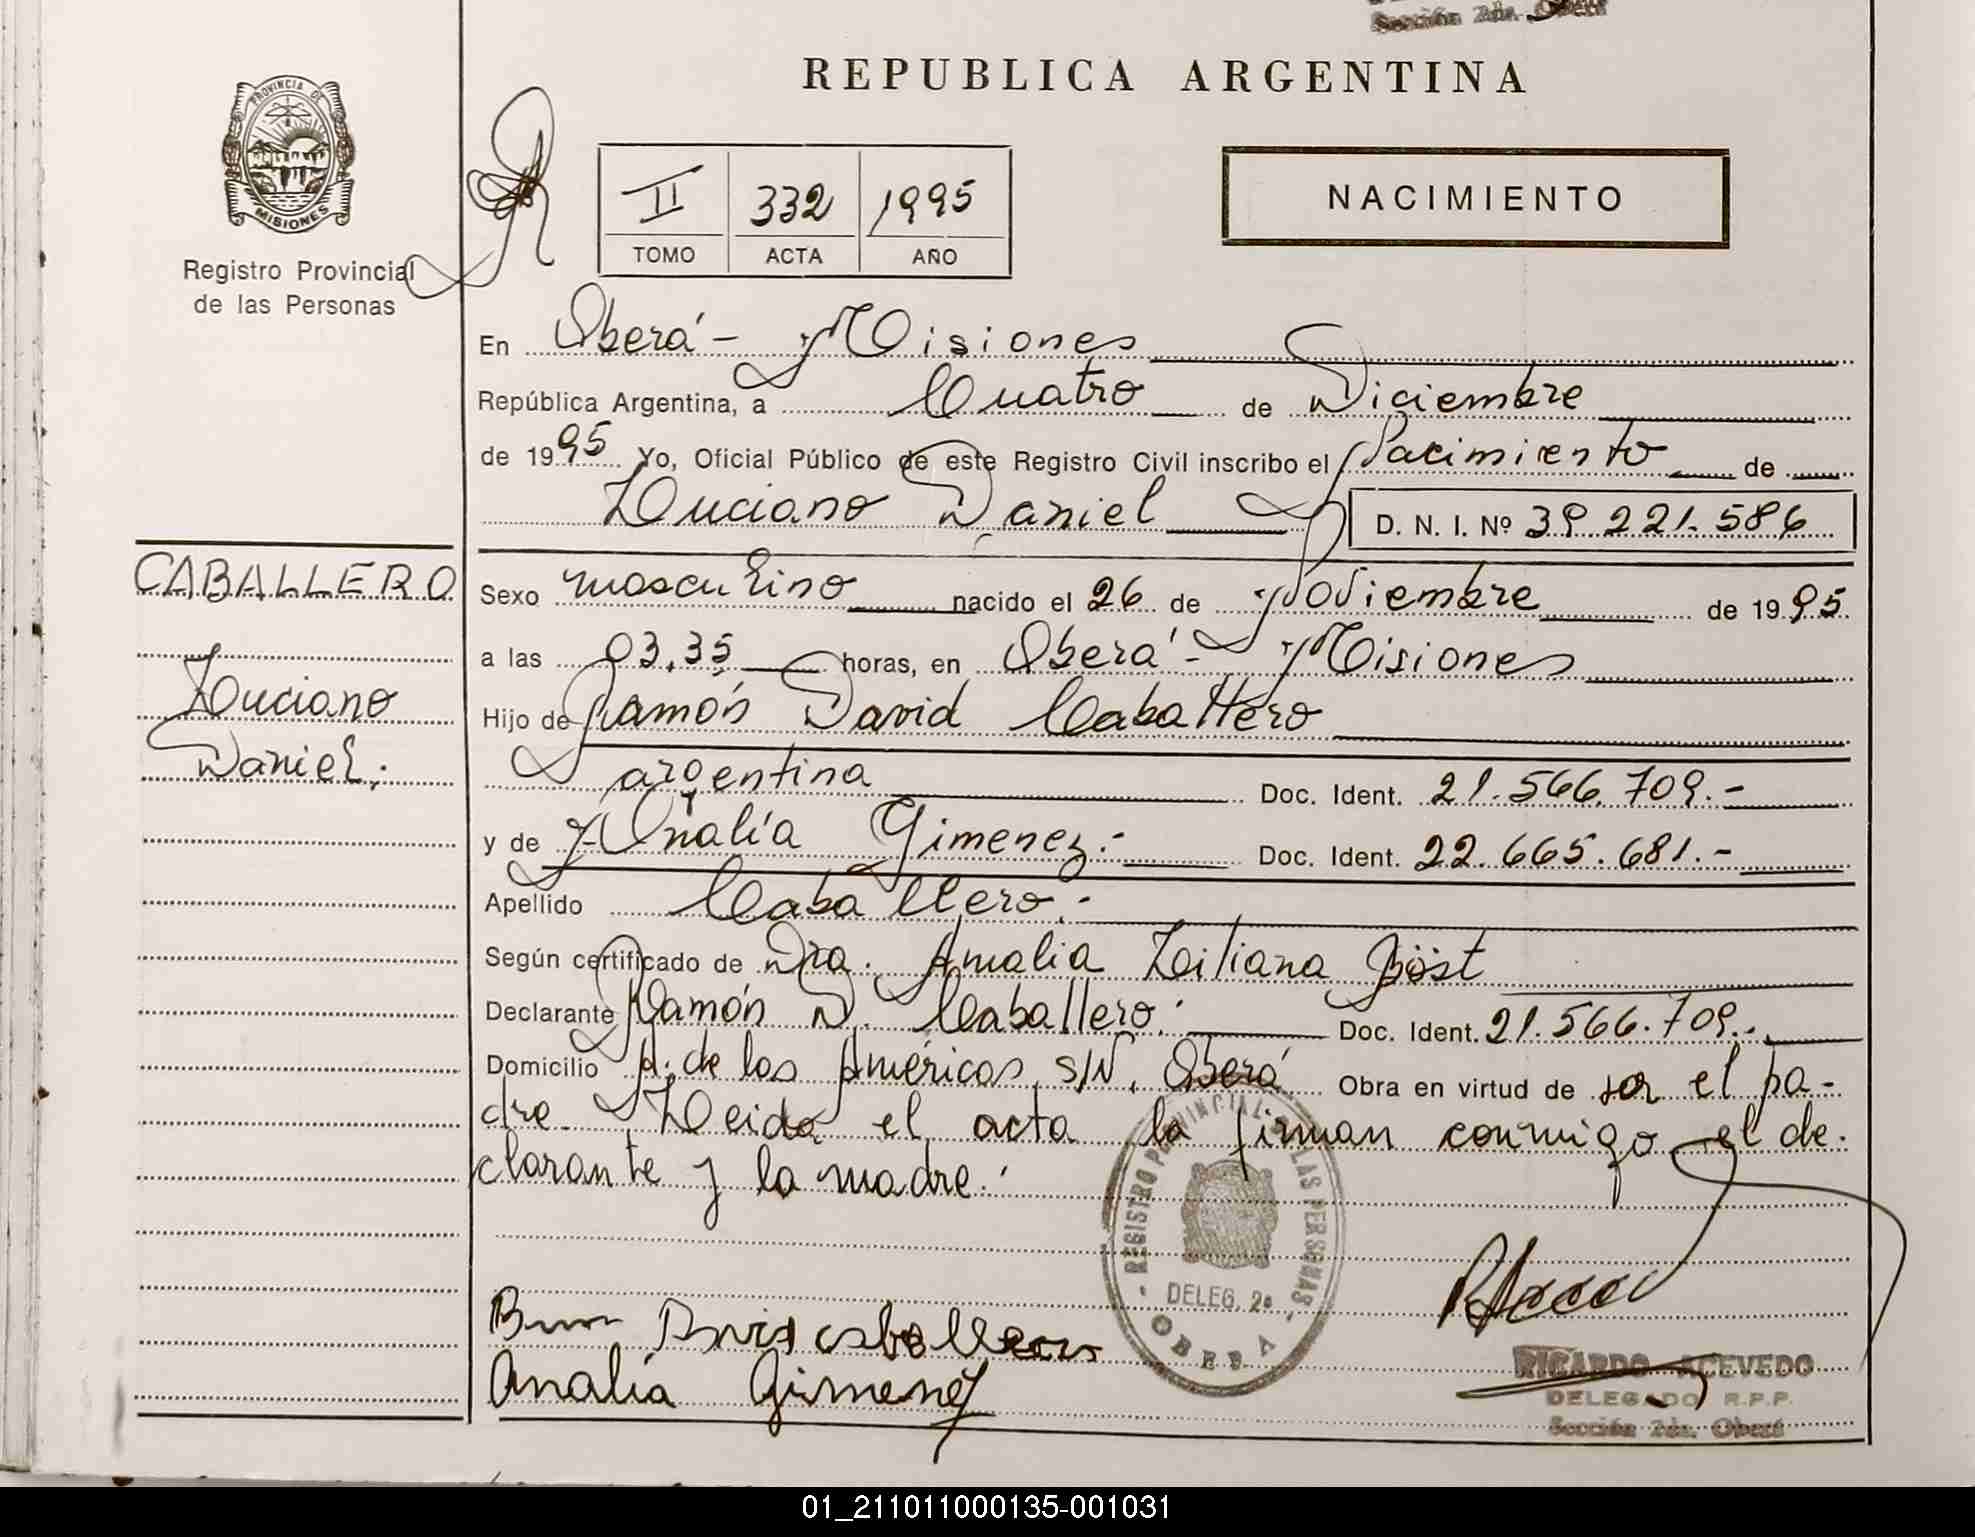 Sección 2da. Oberá
REPUBLICA ARGENTINA
PROVINCIA DE
MISIONES
Registro Provincial
de las Personas
II 332 1995
TOMO ACTA AÑO
NACIMIENTO
En Oberá - Misiones
República Argentina, a Cuatro de Diciembre
de 1995 Yo, Oficial Público de este Registro Civil inscribo el Nacimiento de
Luciano Daniel D. N. I. Nº 39.221.586
CABALLERO
Luciano
Daniel.
Sexo masculino nacido el 26 de Noviembre de 1995
a las 03,35 horas, en Oberá - Misiones
Hijo de Ramón David Caballero
argentina Doc. Ident. 21.566.709.-
y de Analía Gimenez.- Doc. Ident. 22.665.681.-
Apellido Caballero.-
Según certificado de Dra. Amalia Liliana Jöst
Declarante Ramón D. Caballero. Doc. Ident. 21.566.709.
Domicilio A. de las Américas S/N, Oberá Obra en virtud de ser el pa-
dre. Leida el acta la firman conmigo el de-
clarante y la madre.
REGISTRO PROVINCIAL DE LAS PERSONAS
DELEG. 2a
OBERA
David Caballero
Analía Gimenez
RICARDO ACEVEDO
DELEGADO R.P.P.
Sección 2da. Oberá
01_211011000135-001031